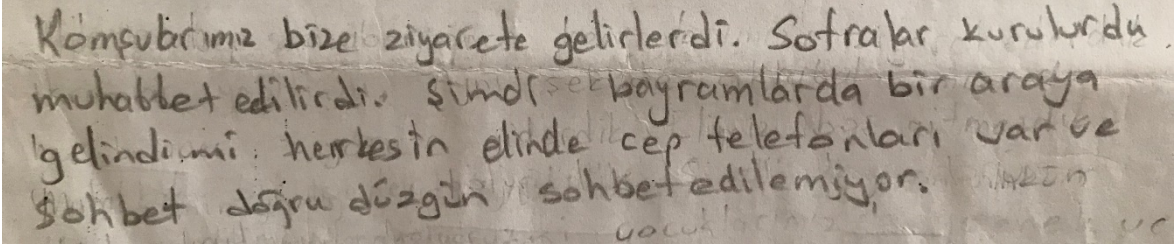 Komşularımız bize ziyarete gelirlerdi. Sofralar kurulurdu,
muhabbet edilirdi. Şimdi bayramlarda bir araya
gelindi mi herkesin elinde cep telefonları var ve
sohbet doğru düzgün sohbet edilemiyor.